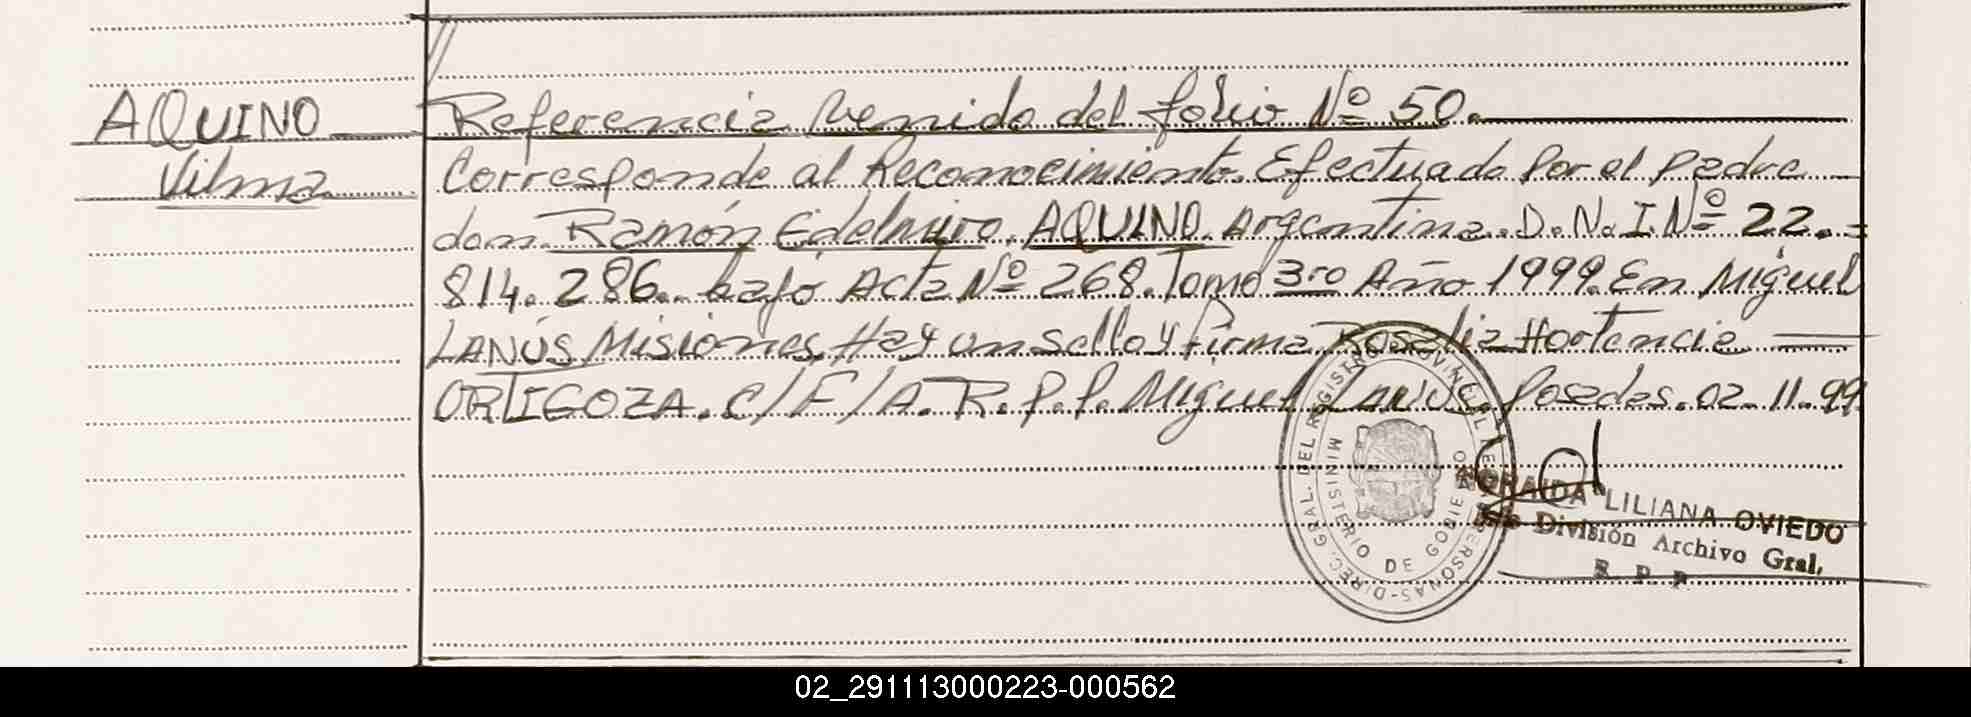 AQUINO
Vilma
Referencia Venida del folio Nº 50.
Corresponde al Reconocimiento. Efectuado Por el Padre
don. Ramón Edelmiro. AQUINO. Argentino. D.N.I. Nº 22.=
814.286.. bajo Acta Nº 268. Tomo 3ro Año 1999. En Miguel
LANÚS Misiones. Hay un Sello y firma Rosalia Hortencia
ORTIGOZA. C/F/A. R.P.P. Miguel LANUS. Posadas. 02-11-99
DIREC. GRAL. DEL REGISTRO PROVINCIAL DE LAS PERSONAS
MINISTERIO DE GOBIERNO
LILIANA OVIEDO
División Archivo Gral.
R. P. P.
02_291113000223-000562